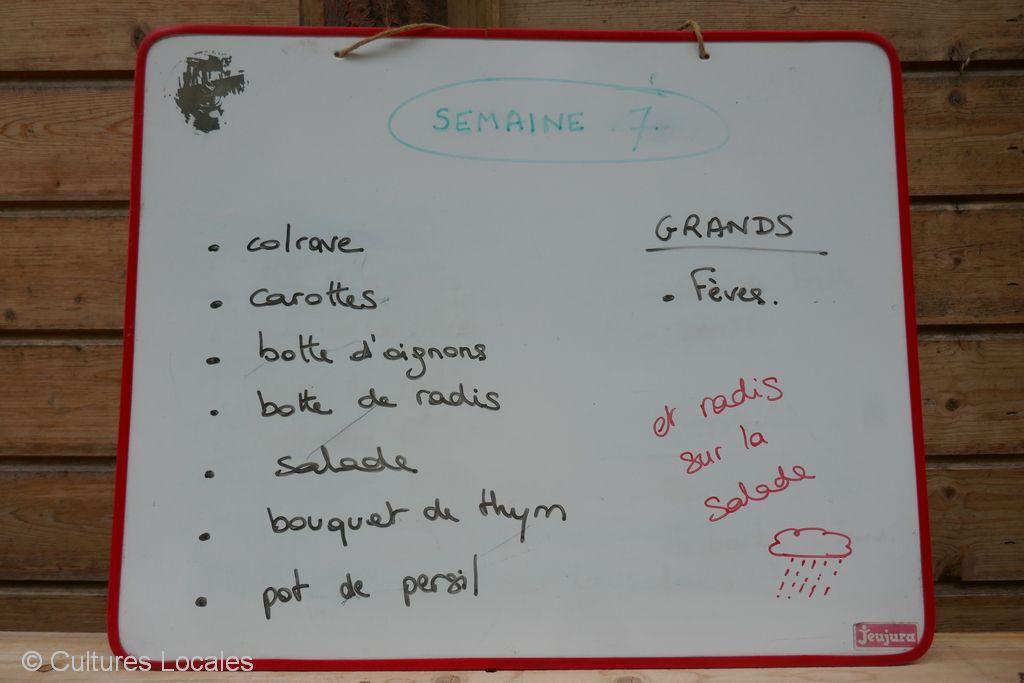 SEMAINE 7
• colrave
• carottes
• botte d'oignons
• botte de radis
• salade
• bouquet de thym
• pot de persil
GRANDS
• Fèves.
et radis
sur la
salade
Jeujura
© Cultures Locales